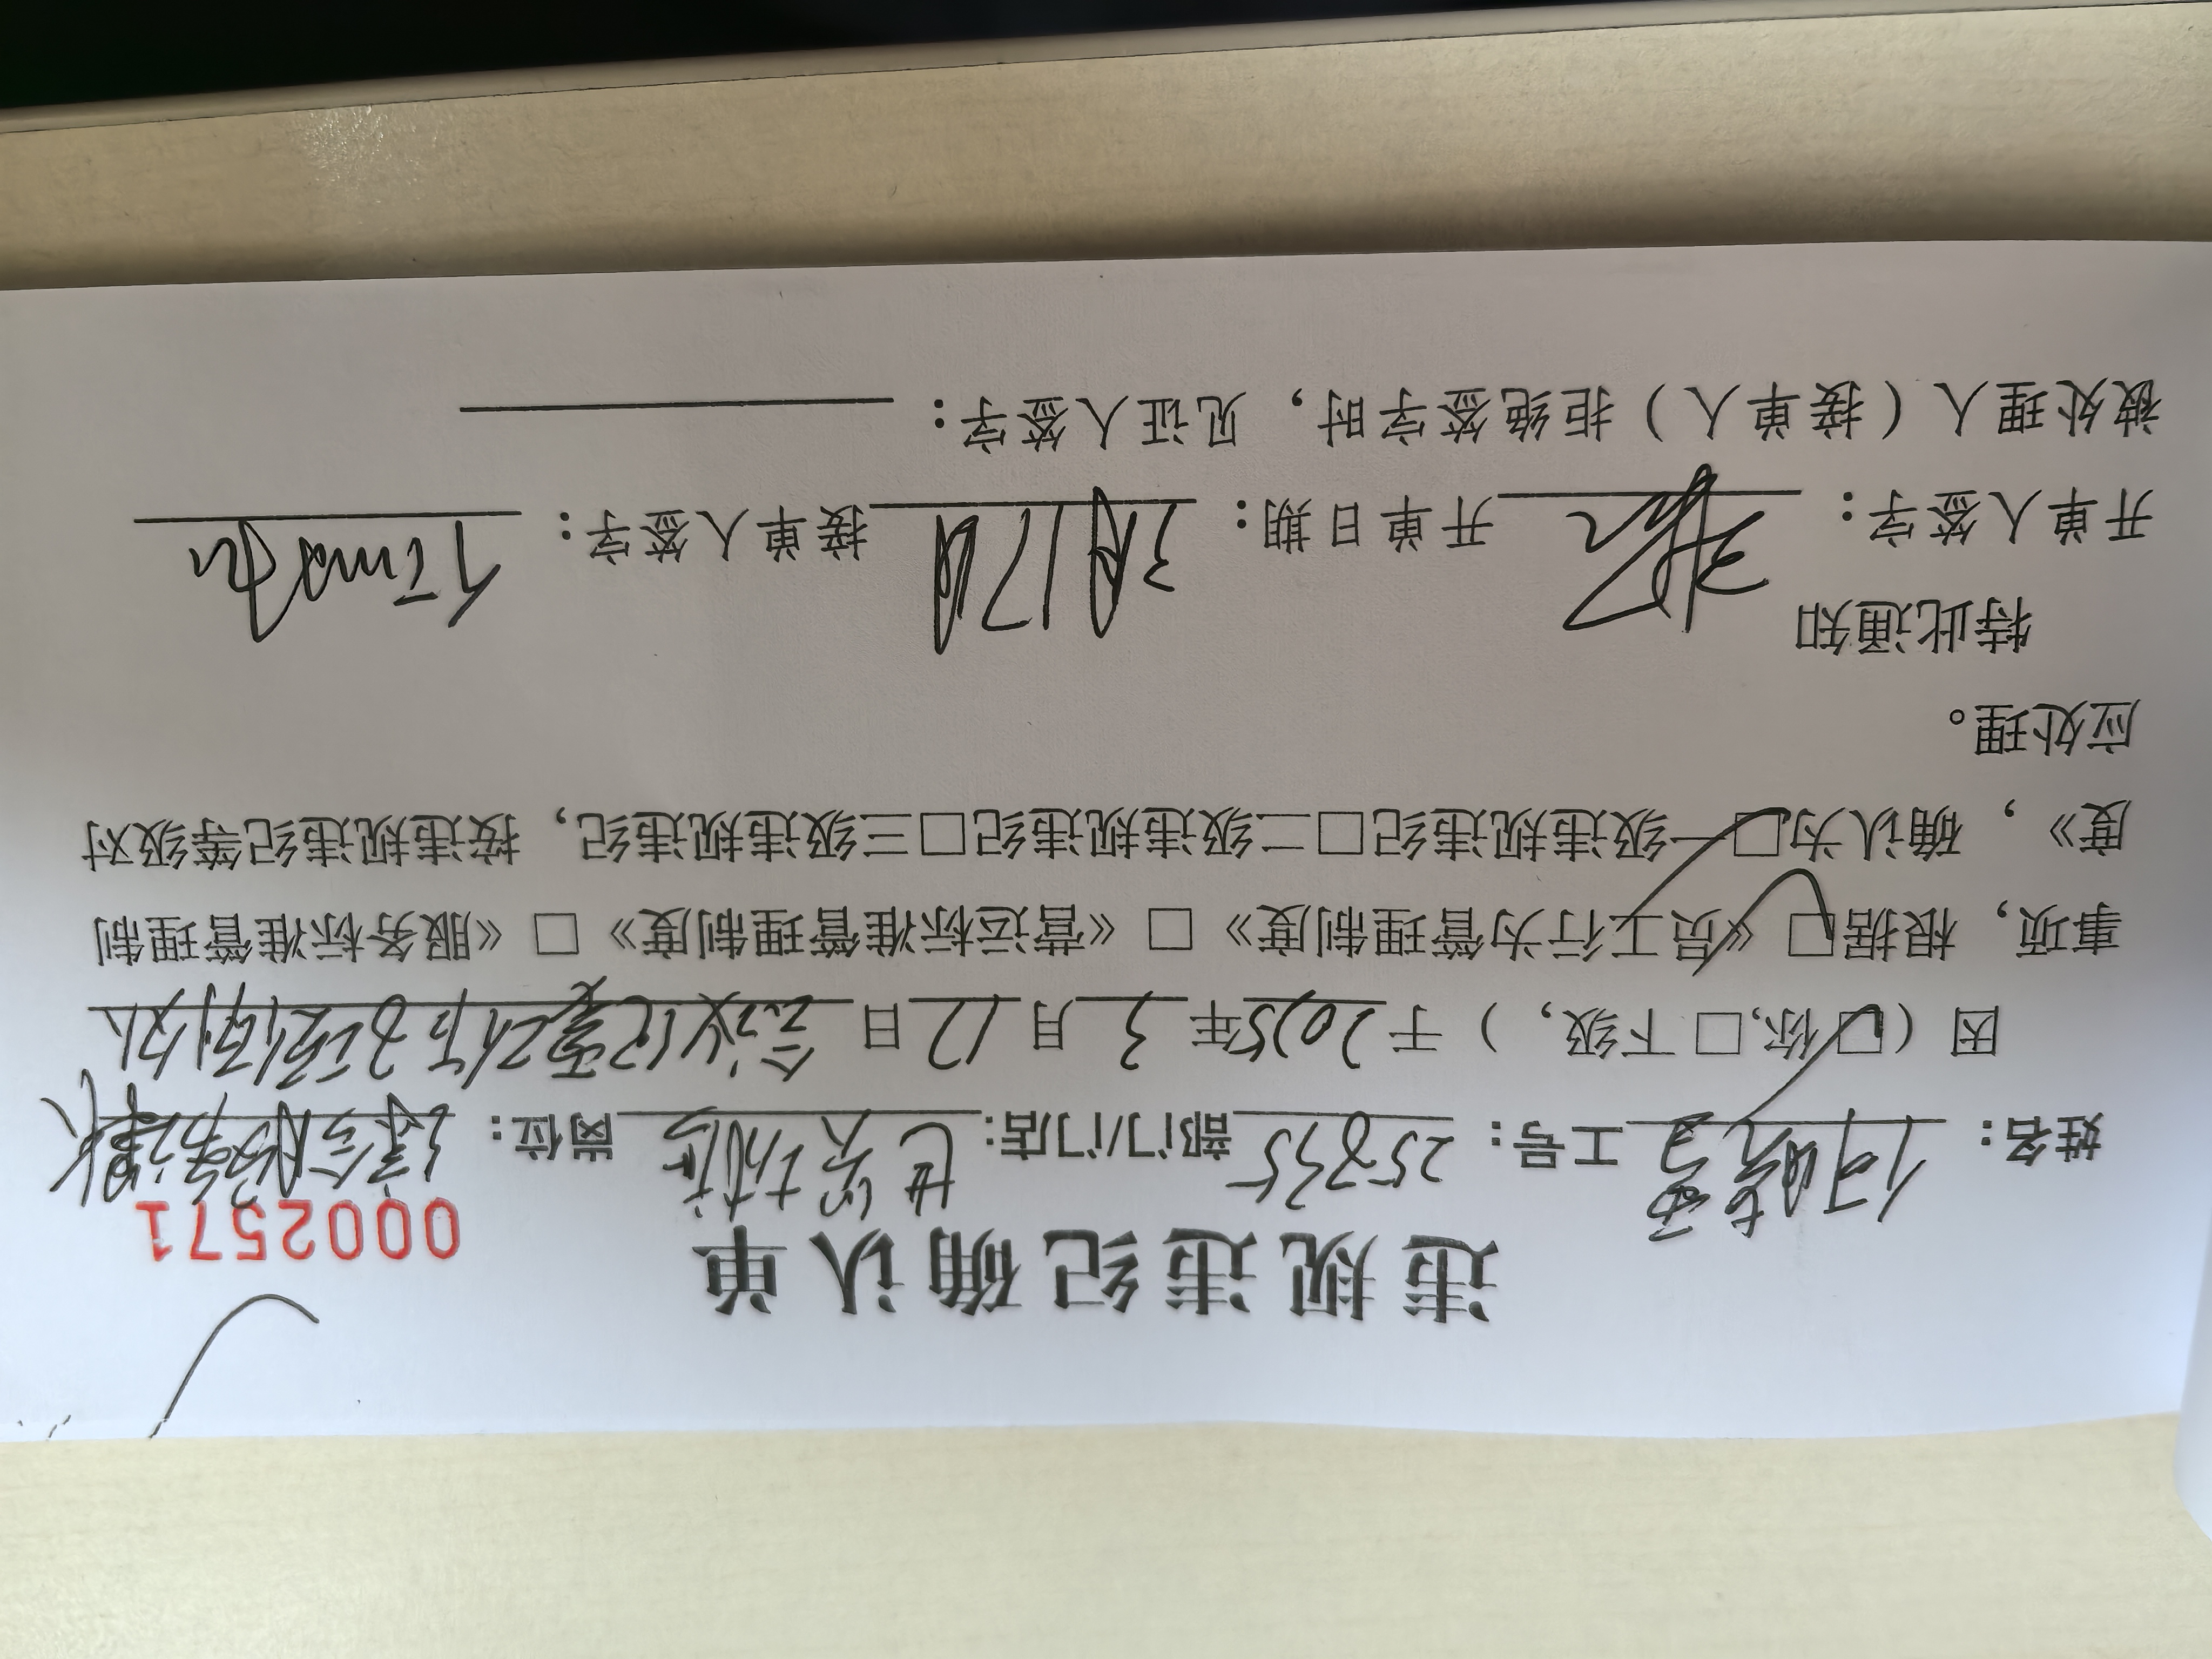 违规违纪确认单
0002571
姓名： 工号：258335 部门/门店：世贸城店 岗位：综合服务课课长
因（□你，□下级，）于2025年3月12日会议纪要
事项，根据□《员工行为管理制度》□《营运标准管理制度》□《服务标准管理制
度》，确认为□一级违规违纪□二级违规违纪□三级违规违纪，按违规违纪等级对
应处理。
特此通知
开单人签字： 开单日期：3月17日 接单人签字：
被处理人（接单人）拒绝签字时，见证人签字：